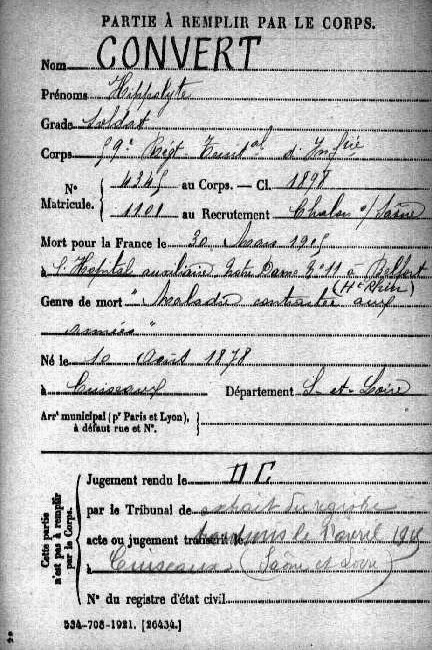 PARTIE À REMPLIR PAR LE CORPS.
Nom CONVERT
Prénoms Hippolyte
Grade Soldat
Corps 59e Régt Territal d'Infrie
N° Matricule. { 4345 au Corps. — Cl. 1898
1101 au Recrutement Chalon s/Saône
Mort pour la France le 30 Mars 1915
à l'Hopital auxiliaire Notre Dame N° 11 à Belfort
(Ht Rhin)
Genre de mort "Maladie contractée aux
armées"
Né le 10 Août 1878
à Cuiseaux Département S-et-Loire
Arrt municipal (pr Paris et Lyon), à défaut rue et N°. }
Cette partie n'est pas à remplir par le Corps. {
Jugement rendu le D C
par le Tribunal de extrait du registre
acte ou jugement transcrit le avril 1915
à Cuiseaux (Saône et Loire)
N° du registre d'état civil
534-708-1921. [26434.]